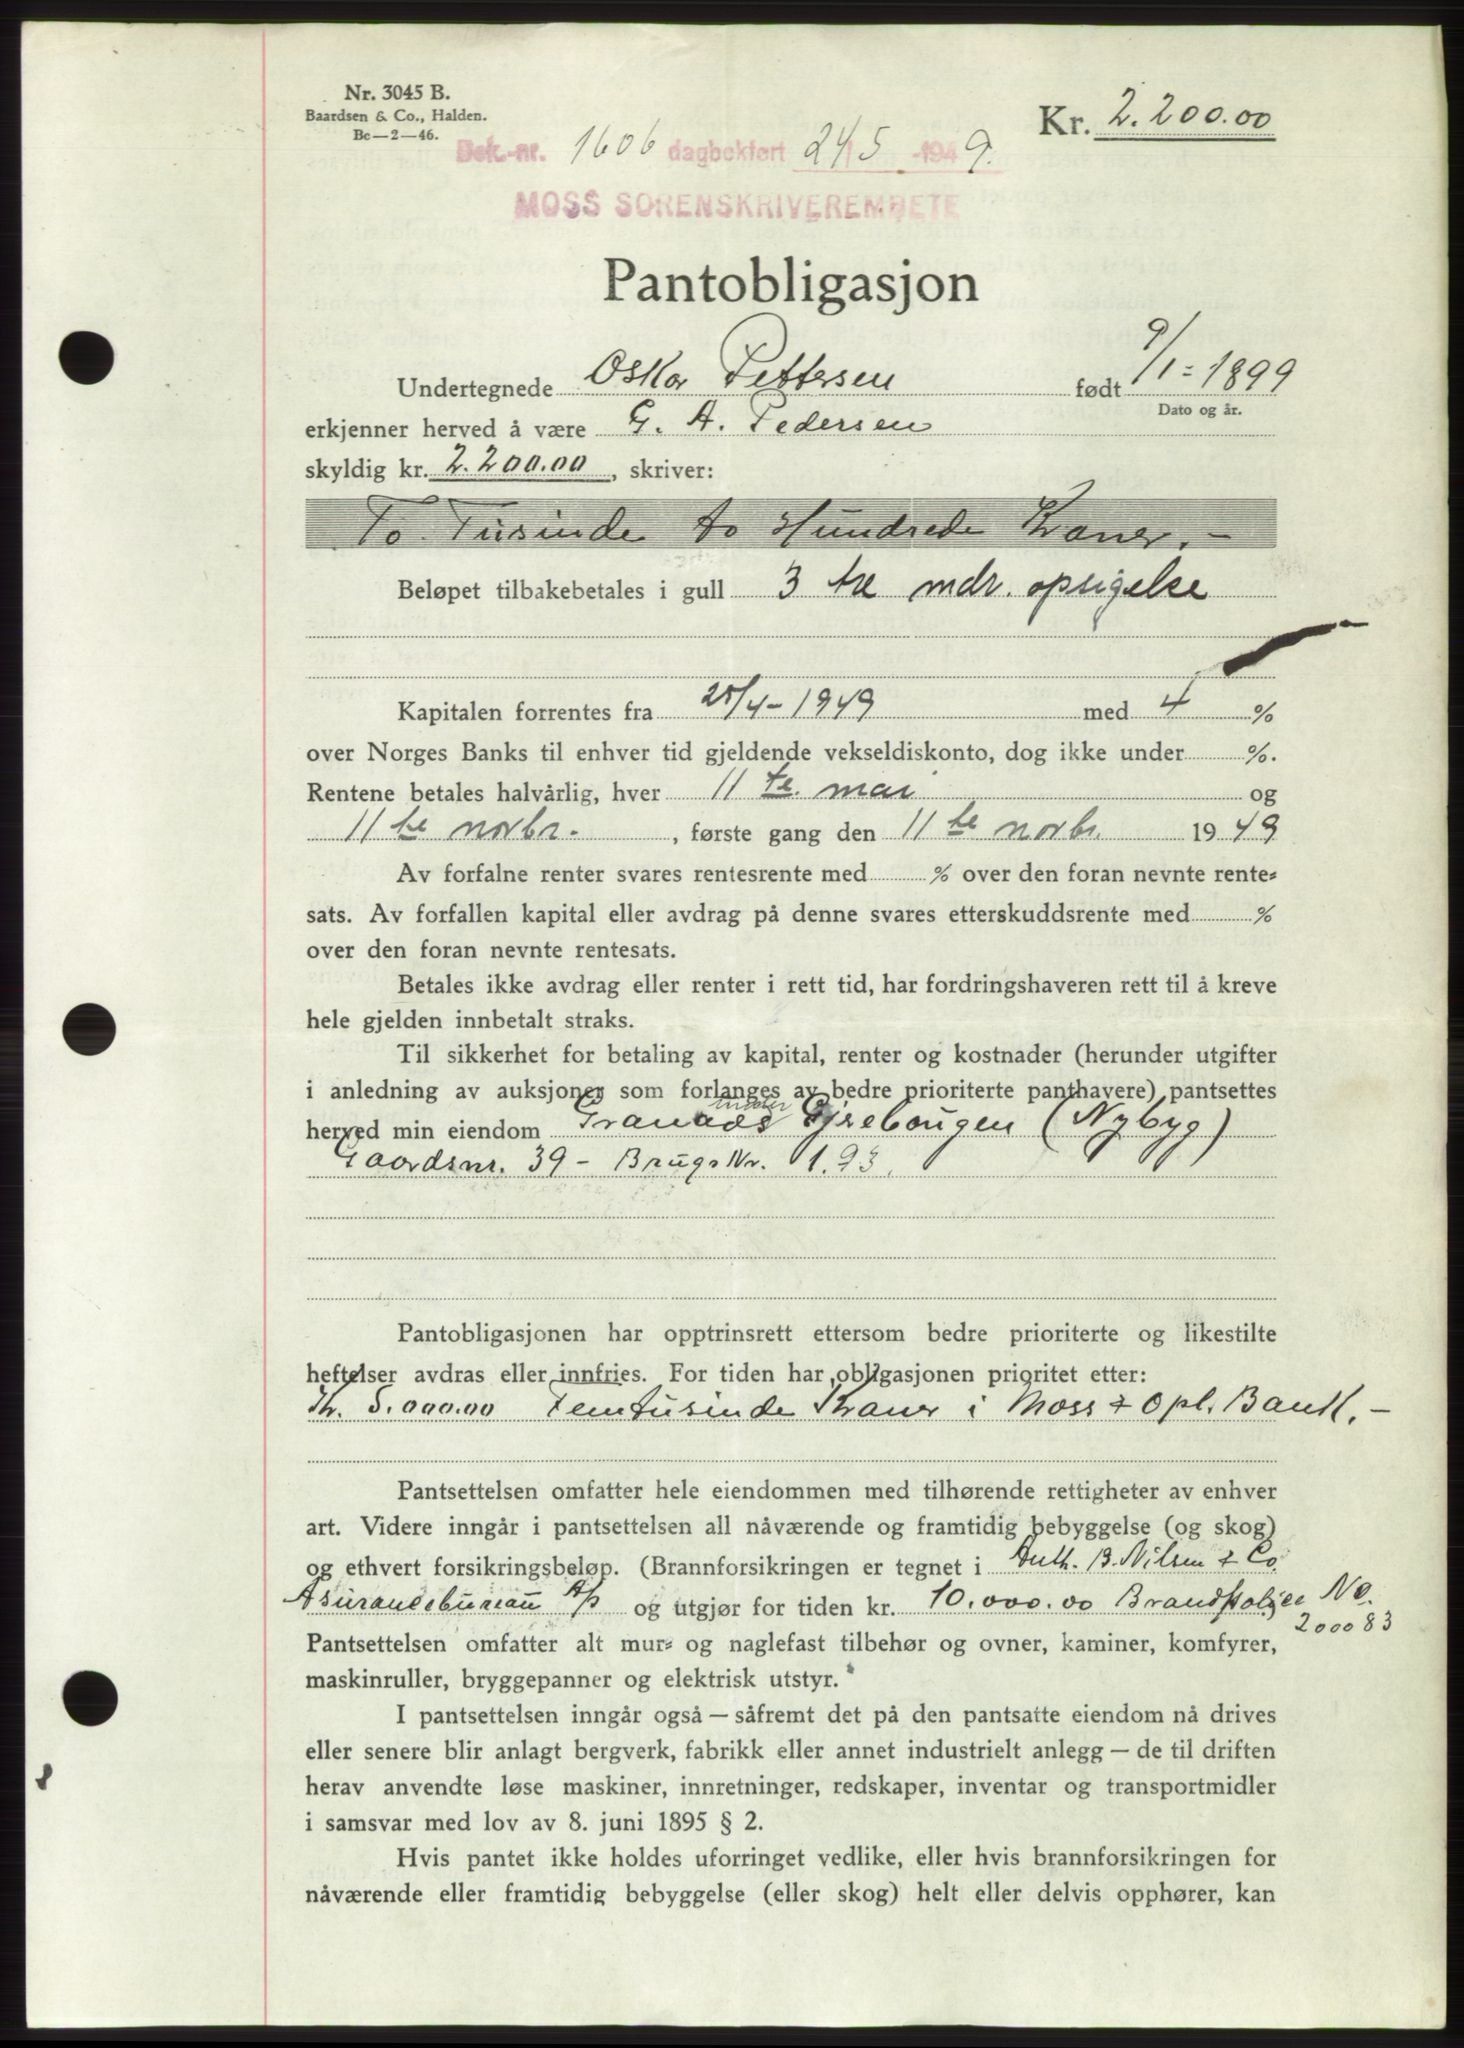 Nr. 3045 B.
Baardsen & Co., Halden.
Bc—2—46.
Kr. 2.200.00
Dok.-nr. 1606 dagbokført 24/5 1949.
MOSS SORENSKRIVEREMBETE
Pantobligasjon
Undertegnede Oskar Pettersen født 9/1 = 1899
Dato og år.
erkjenner herved å være G. A. Pedersen
skyldig kr. 2.200.00, skriver:
To Tusinde to Hundrede Kroner.-
Beløpet tilbakebetales i gull 3 tre mdr. opsigelse
Kapitalen forrentes fra 25/4-1949 med 4 %
over Norges Banks til enhver tid gjeldende vekseldiskonto, dog ikke under %.
Rentene betales halvårlig, hver 11 te. mai og
11 te novbr. , første gang den 11 te novbr. 1949
Av forfalne renter svares rentesrente med % over den foran nevnte rente-
sats. Av forfallen kapital eller avdrag på denne svares etterskuddsrente med %
over den foran nevnte rentesats.
Betales ikke avdrag eller renter i rett tid, har fordringshaveren rett til å kreve
hele gjelden innbetalt straks.
Til sikkerhet for betaling av kapital, renter og kostnader (herunder utgifter
i anledning av auksjoner som forlanges av bedre prioriterte panthavere) pantsettes
under
herved min eiendom (Nybyg)
Gaardsnr. 39 - Brugs Nr. 1.93.
Pantobligasjonen har opptrinsrett ettersom bedre prioriterte og likestilte
heftelser avdras eller innfries. For tiden har obligasjonen prioritet etter:
Kr. 5.000.00 Femtusinde Kroner i Moss & Opl. Bank.-
Pantsettelsen omfatter hele eiendommen med tilhørende rettigheter av enhver
art. Videre inngår i pantsettelsen all nåværende og framtidig bebyggelse (og skog)
og ethvert forsikringsbeløp. (Brannforsikringen er tegnet i Anth. B. Nilsen & Co
Asurancebureau A/S og utgjør for tiden kr. 10.000.00 Brandpolise No.
200083
Pantsettelsen omfatter alt mur- og naglefast tilbehør og ovner, kaminer, komfyrer,
maskinruller, bryggepanner og elektrisk utstyr.
I pantsettelsen inngår også — såfremt det på den pantsatte eiendom nå drives
eller senere blir anlagt bergverk, fabrikk eller annet industrielt anlegg — de til driften
herav anvendte løse maskiner, innretninger, redskaper, inventar og transportmidler
i samsvar med lov av 8. juni 1895 § 2.
Hvis pantet ikke holdes uforringet vedlike, eller hvis brannforsikringen for
nåværende eller framtidig bebyggelse (eller skog) helt eller delvis opphører, kan